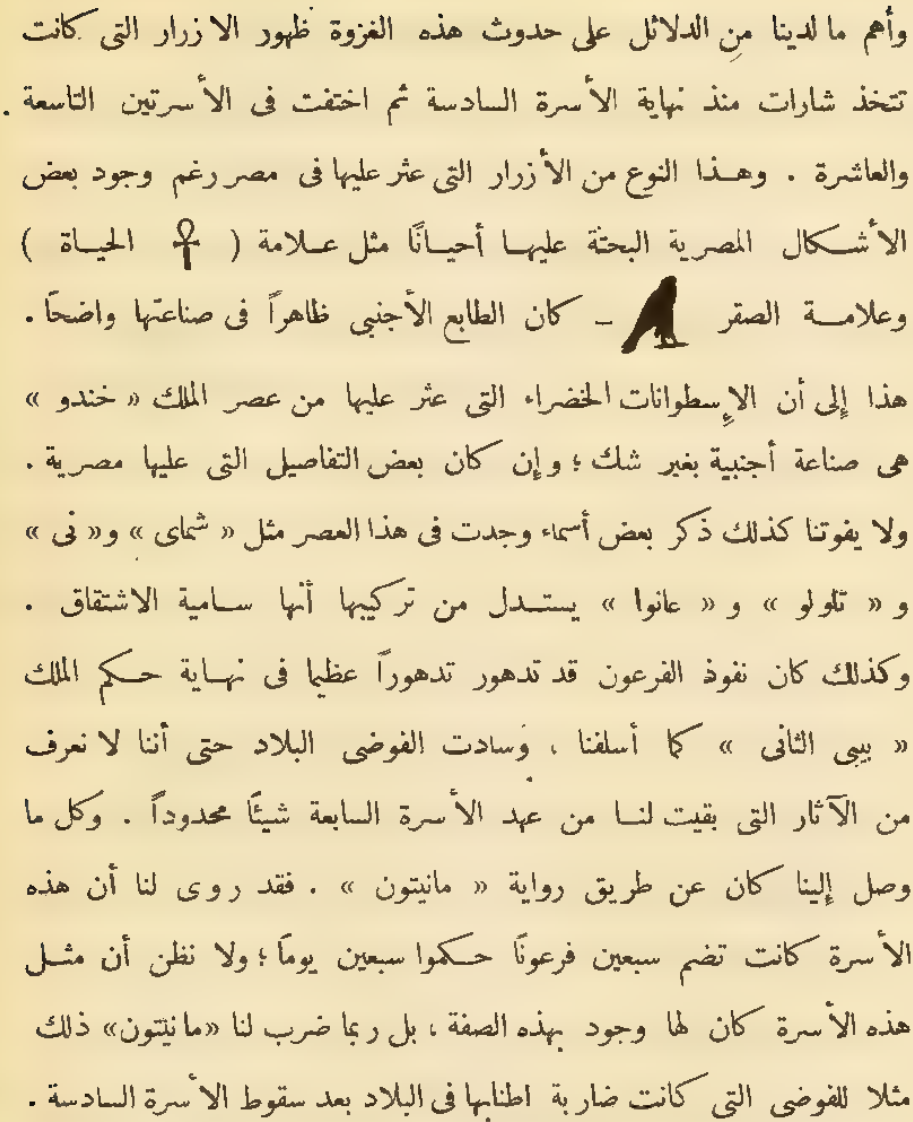 وأهم ما لدينا من الدلائل على حدوث هذه الغزوة ظهور الازرار التى كانت
تتخذ شارات منذ نهاية الأسرة السادسة ثم اختفت فى الأسرتين التاسعة .
والعاشرة . وهـذا النوع من الأزرار التى عثر عليها فى مصر رغم وجود بعض
الأشـكال المصرية البحتة عليهـا أحيـانًا مثل عـلامة ( ☥ الحيـاة )
وعلامـة الصقر ــ كان الطابع الأجنبى ظاهراً فى صناعتها واضحًا .
هذا إلى أن الإسطوانات الخضراء التى عثر عليها من عصر الملك « خندو »
هى صناعة أجنبية بغير شك ؛ وإن كان بعض التفاصيل التى عليها مصرية .
ولا يفوتنا كذلك ذكر بعض أسماء وجدت فى هذا العصر مثل « شماى » و« نى »
و « تلولو » و « عانوا » يستـدل من تركيبها أنها سـامية الاشتقاق .
وكذلك كان نفوذ الفرعون قد تدهور تدهوراً عظيما فى نهـاية حـكم الملك
« بيبى الثانى » كما أسلفنا ، وسادت الفوضى البلاد حتى أننا لا نعرف
من الآثار التى بقيت لنـا من عهد الأسرة السابعة شيئًا محدوداً . وكل ما
وصل إلينا كان عن طريق رواية « مانيتون » . فقد روى لنا أن هذه
الأسرة كانت تضم سبعين فرعونًا حـكموا سبعين يومًا ؛ ولا نظن أن مثـل
هذه الأسرة كان لها وجود بهذه الصفة ، بل ربما ضرب لنا «مانيتون» ذلك
مثلا للفوضى التى كانت ضاربة اطنابها فى البلاد بعد سقوط الأسرة السادسة .